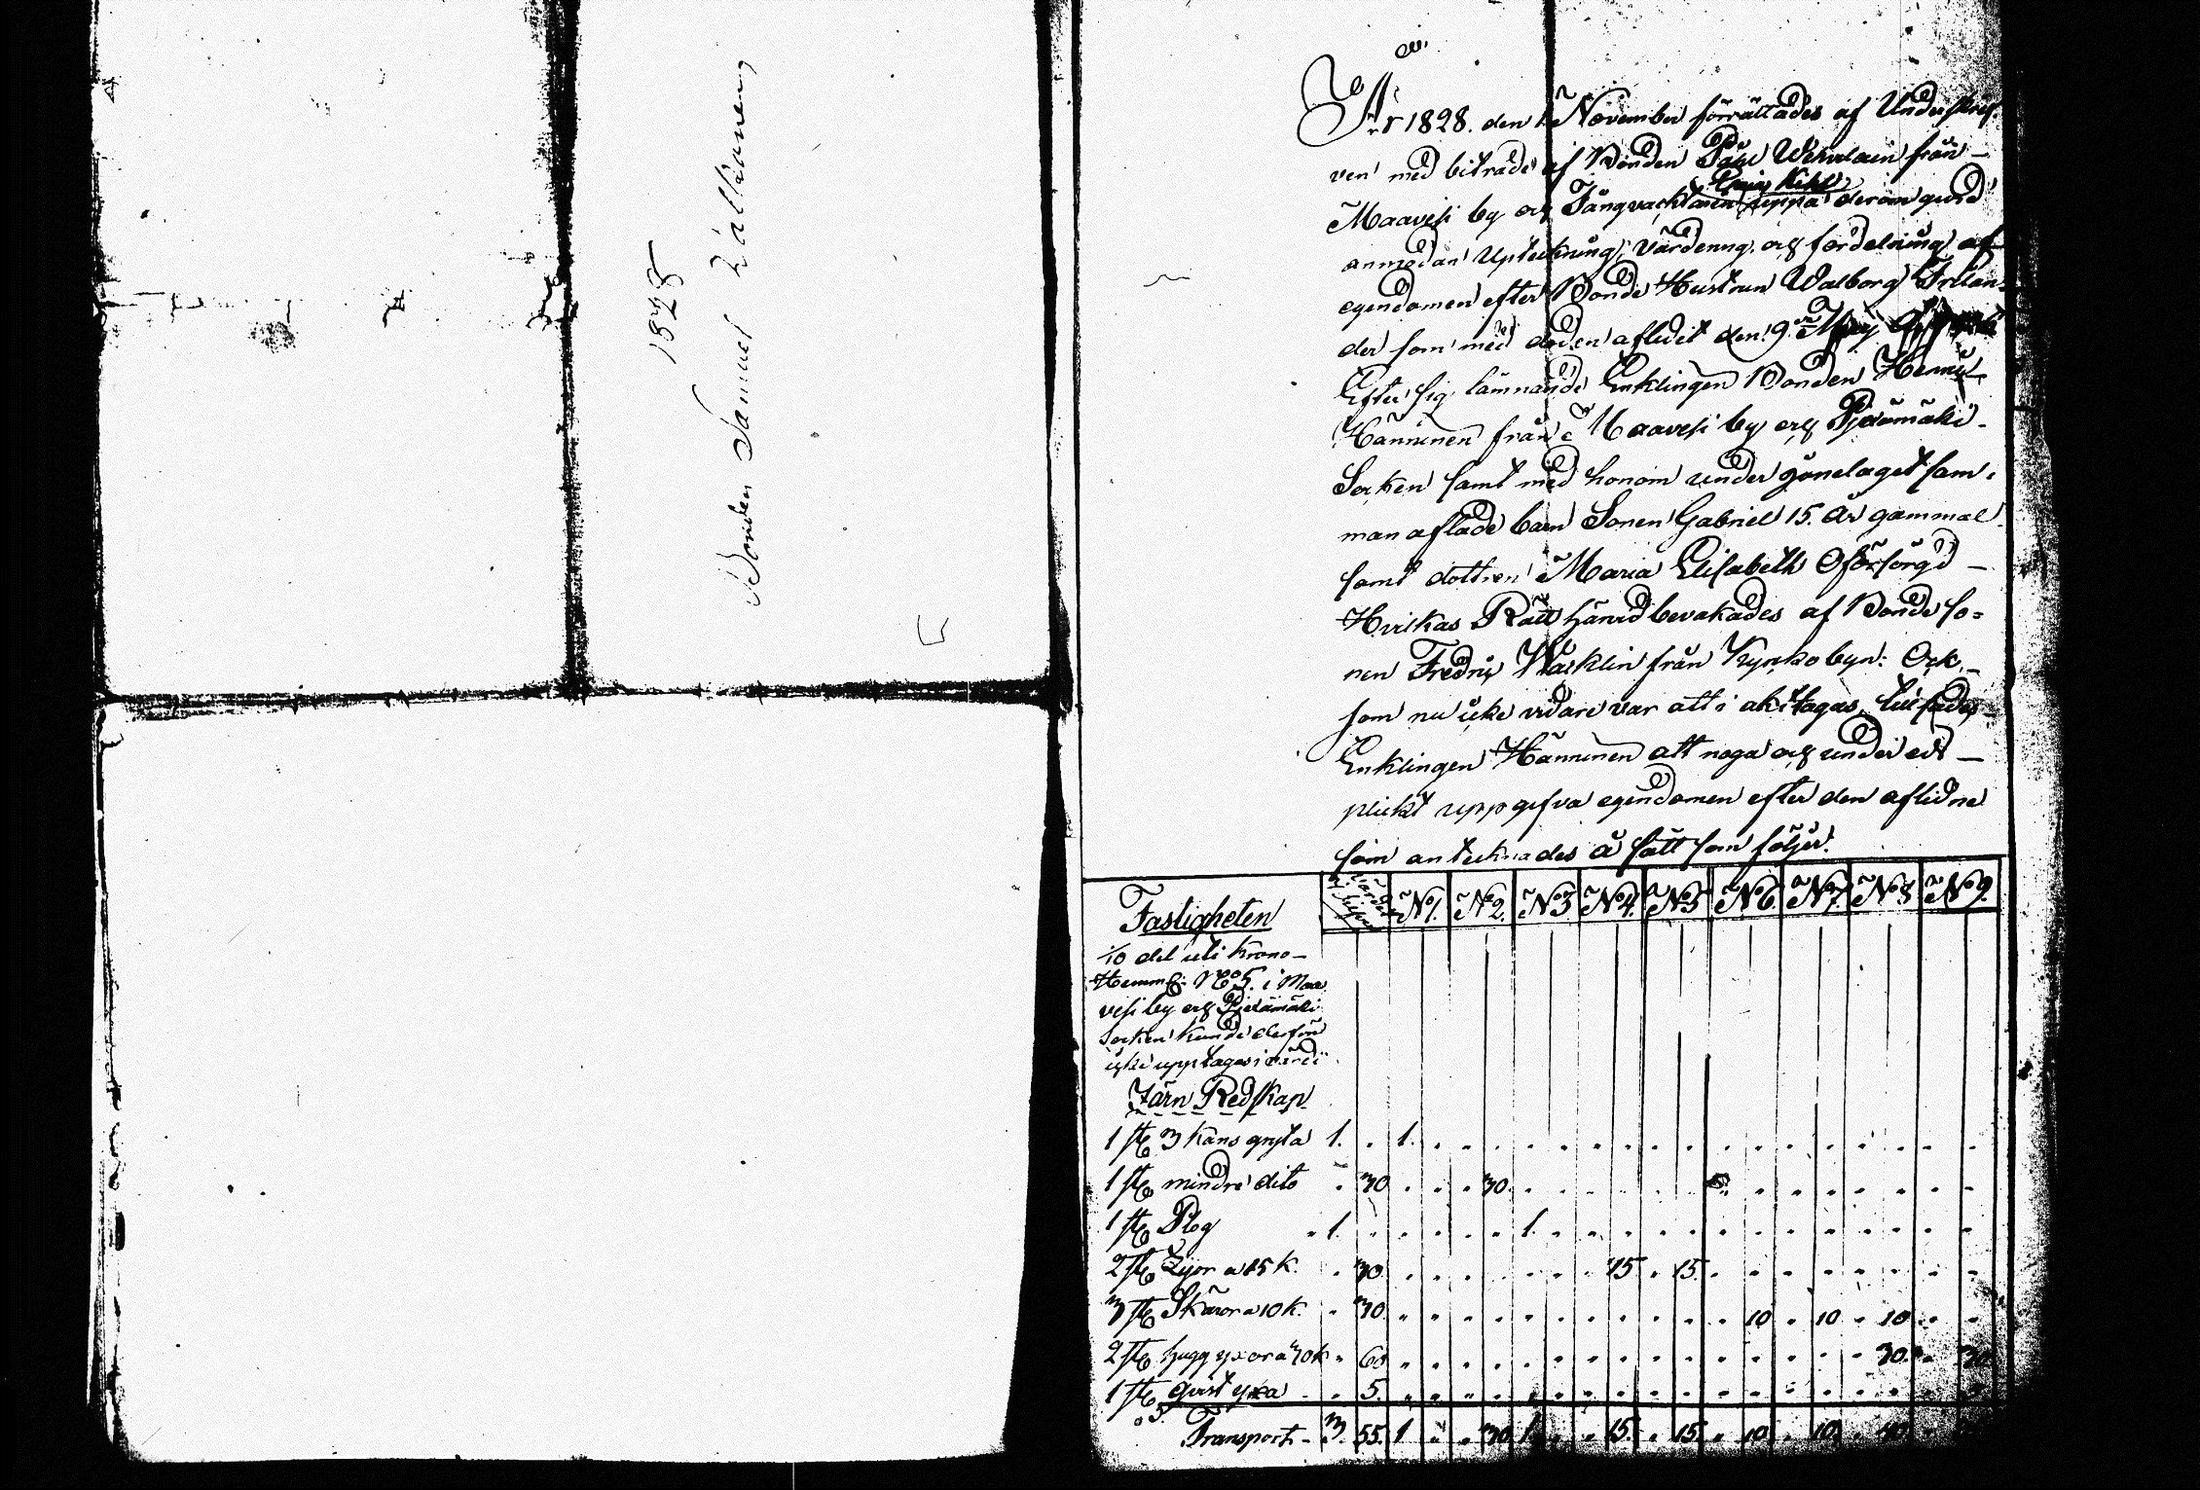 1828
Bonden Samuel
År 1828. den 1 November förrättades af Underskref-
ven med biträde af Bonden Påhl från
Maavesi by och Fångvacktaren derom gjord
anmodan Upteckning, värdering och fördelning af
egendomen efter Bonde Hustrun Walborg Frilan-
der som med döden aflidit den 9 May
Efter sig lämnande Enklingen Bonden Henric
Hänninen från Maavesi by och Pjexämäki
Socken samt med honom under gönelaget sam-
man aflade barn Sonen Gabriel 15. År gammal
samt dottren Maria Elisabeth Oförsörgd
Hvilkas Rätt härvid bevakades af Bonde so-
nen Fredric från by: Ock
som nu icke vidare var att i akttagas,
Enklingen Hänninen att noga och under ed-
plickt uppgifva egendomen efter den aflidne
som antecknades å sätt som följer.
Fastigheten N:o1. N:o2. N:o3 N:o4. N:o5 N:o6. N:o7. N:o8 N:o9.
1/10 del uti Krono-
Hemm: N:o 5. i Maa
vesi by och Pjexämäki
Socken kunde derföre
icke upptagas i värde
Järn Redskap
1 st 3 Kans gryta 1. 1.
1 st mindre dito 30 30.
1 st Plog 1. 1.
2 st Lijor a 15 K. 30 15 15.
3 st Skäror a 10 K. 30. 10 10 10
2 st hugg yxor a 30 K 60 30. 30
1 st qvist yxa 5.
Transport 3. 55. 1 30 1. 15. 15. 10 10. 40